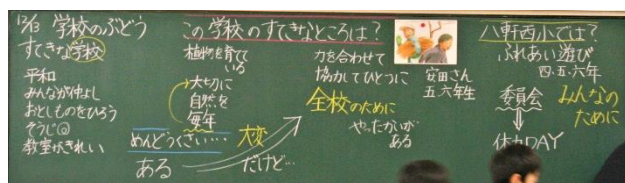 12/13 学校のぶどう
すてきな学校
平和
みんなが仲よし
おとしものをひろう
そうじ
教室がきれい
この学校のすてきなところは？
植物を育てて
いる
大切に
自然を
毎年
めんどうくさい…
ある
大変
だけど…
力を合わせて
協力してひとつに
全校のために
やったかいが
ある
安田さん
五、六年生
八軒西小では？
ふれあい遊び
四・五・六年
委員会
⇓
体力DAY
みんなの
ために